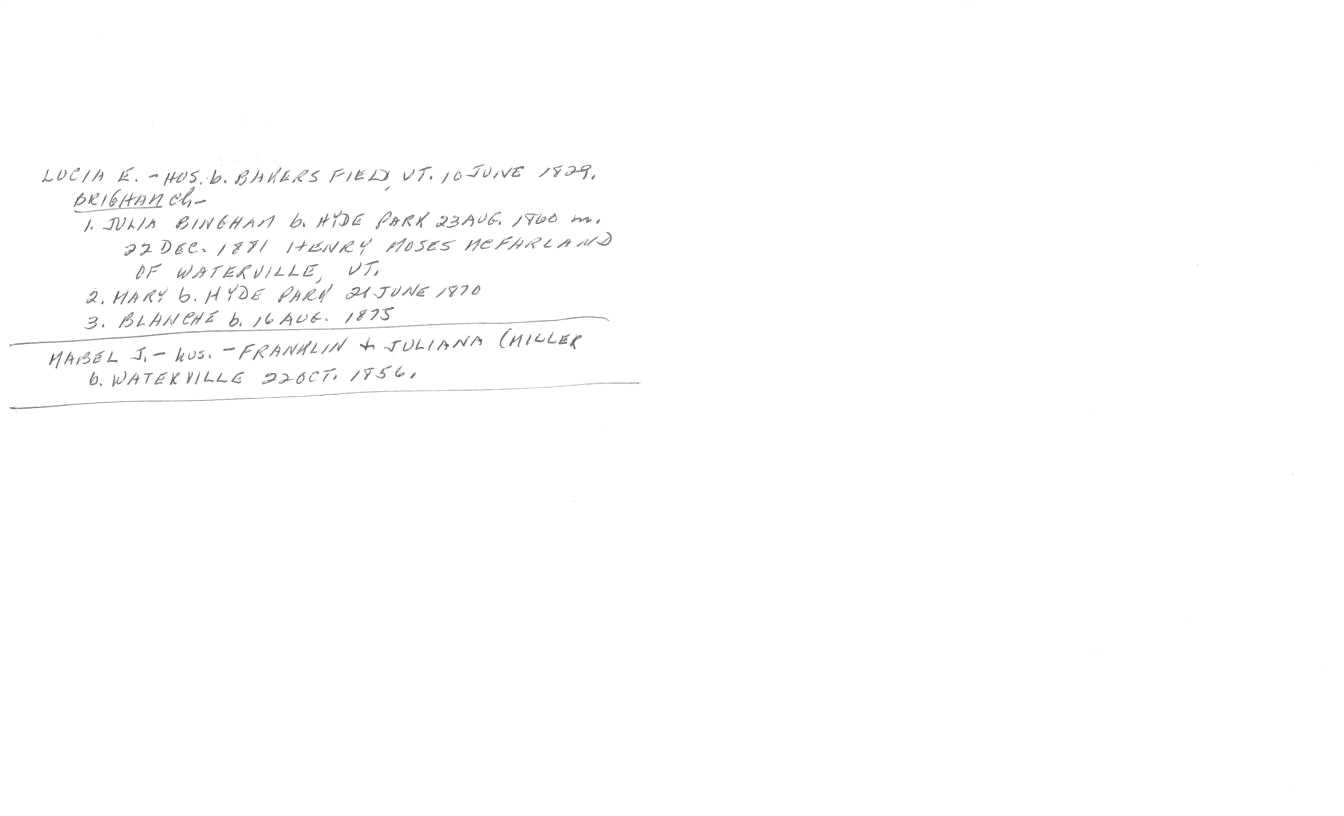 LUCIA E. - HUS. b. BAKERS FIELD, VT. 10 JUNE 1829.
BRIGHAM ch-
1. JULIA BINGHAM b. HYDE PARK 23 AUG. 1860 m.
22 DEC. 1881 HENRY MOSES MCFARLAND
OF WATERVILLE, VT.
2. MARY b. HYDE PARK 21 JUNE 1870
3. BLANCHE b. 16 AUG. 1875
MABEL J. - hus. - FRANKLIN + JULIANA (MILLER
b. WATERVILLE 22 OCT. 1856.